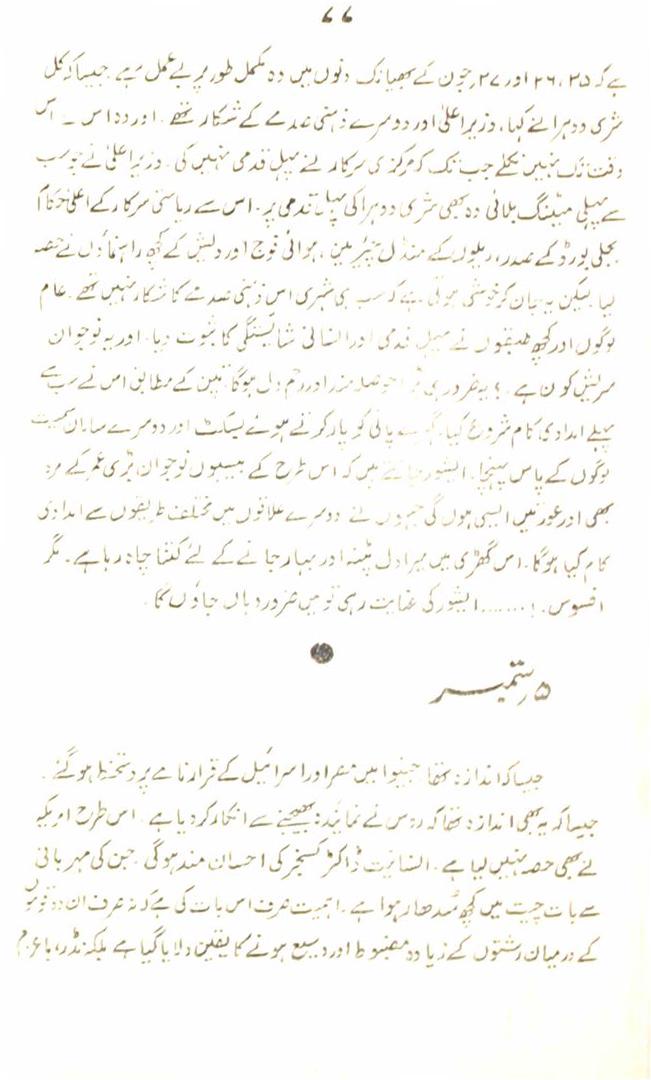 ۶۶
ہے کہ ۲۵، ۲۶ اور ۲۷ جون کے بھیانک دنوں میں وہ مکمل طور پر بے عمل رہے جیسا کہ کل
شری دوہرا نے کہا، وزیر اعلیٰ اور دوسرے ذہنی صدمے کے شکار تھے۔ اور وہ اس سے اس
وقت تک نہیں نکلے جب تک کہ مرکزی سرکار نے پہل قدمی نہیں کی۔ وزیر اعلیٰ نے جو سب
سے پہلی میٹنگ بلائی وہ بھی شری دوہرا کی پہل قدمی پر۔ اس سے ریاستی سرکار کے اعلیٰ حکام
بجلی بورڈ کے صدر، ریلوں کے منڈل چیئرمین، ہوائی فوج اور دیش کے کچھ راہنماؤں نے حصہ
لیا لیکن یہ جان کر خوشی ہوتی ہے کہ سب ہی شہری اس ذہنی صدمے کا شکار نہیں تھے۔ عام
لوگوں اور کچھ طبقوں نے پہل قدمی اور انسانی شائستگی کا ثبوت دیا۔ اور یہ نوجوان
سریش کون ہے۔؟ یہ ضرور ہی بڑا حوصلہ مند اور رحم دل ہوگا۔ تبین کے مطابق اس نے سب سے
پہلے امدادی کام شروع کیا۔ گہرے پانی کو پار کرتے ہوئے بسکٹ اور دوسرے سامان سمیت
لوگوں کے پاس پہنچا۔ ایشور جانتے ہیں کہ اس طرح کے بیسیوں نوجوان بڑی عمر کے مرد
بھی اور عورتیں ایسی ہوں گی جنہوں نے دوسرے علاقوں میں مختلف طریقوں سے امدادی
کام کیا ہوگا۔ اس گھڑی میں میرا دل پٹنہ اور بہار جانے کے لئے کتنا چاہ رہا ہے۔ مگر
افسوس۔! ....... ایشور کی عنایت رہی تو میں ضرور وہاں جاؤں گا۔
۵ ستمبر
جیسا کہ اندازہ تھا جنیوا میں مصر اور اسرائیل کے قرار نامے پر دستخط ہو گئے۔
جیسا کہ یہ بھی اندازہ تھا کہ روس نے نمائندہ بھیجنے سے انکار کر دیا ہے۔ اس طرح امریکہ
نے بھی حصہ نہیں لیا ہے۔ انسانیت ڈاکٹر کسنجر کی احسان مند ہوگی۔ جن کی مہربانی
سے بات چیت میں کچھ سدھار ہوا ہے۔ اہمیت صرف اس بات کی ہے کہ نہ صرف ان دو قوموں
کے درمیان رشتوں کے زیادہ مضبوط اور وسیع ہونے کا یقین دلایا گیا ہے بلکہ نڈر، باعزم